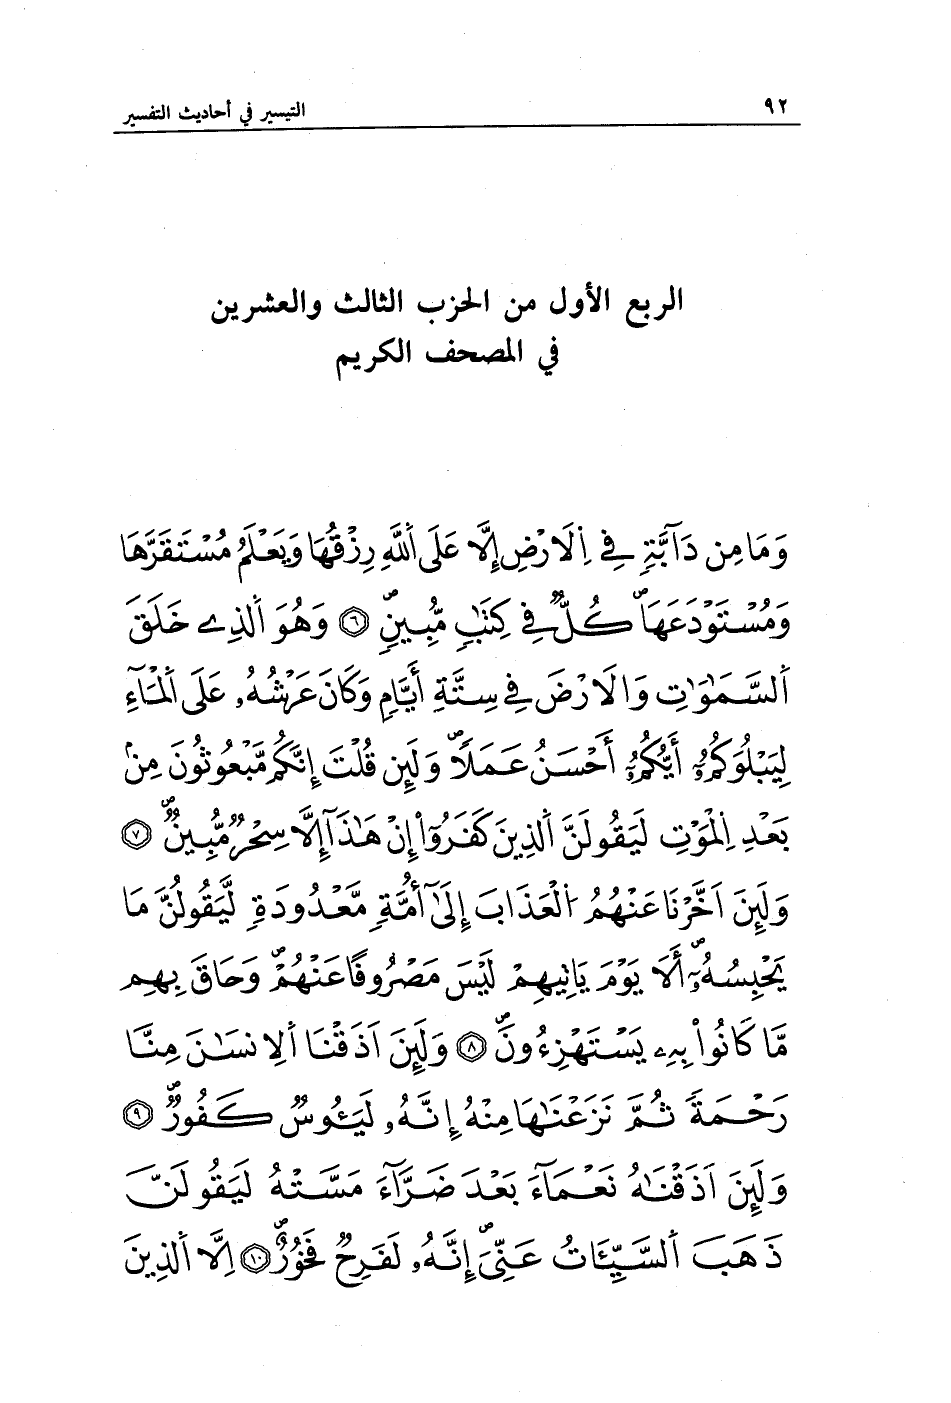 ٩٢ التيسير في أحاديث التفسير
الربع الأول من الحزب الثالث والعشرين
في المصحف الكريم
وَمَا مِن دَآبَّةٖ فِے اِ۬لَارْضِ إِلَّا عَلَى اَ۬للَّهِ رِزْقُهَا وَيَعْلَمُ مُسْتَقَرَّهَا
وَمُسْتَوْدَعَهَاۖ كُلّٞ فِے كِتَٰبٖ مُّبِينٖۖ ٦ وَهُوَ اَ۬لذِے خَلَقَ
اَ۬لسَّمَٰوَٰتِ وَالَارْضَ فِے سِتَّةِ أَيَّامٖ وَكَانَ عَرْشُهُۥ عَلَى اَ۬لْمَآءِ
لِيَبْلُوَكُمُۥٓ أَيُّكُمُۥٓ أَحْسَنُ عَمَلاٗۖ وَلَئِن قُلْتَ إِنَّكُم مَّبْعُوثُونَ مِنۢ
بَعْدِ اِ۬لْمَوْتِ لَيَقُولَنَّ اَ۬لذِينَ كَفَرُوٓاْ إِنْ هَٰذَآ إِلَّا سِحْرٞ مُّبِينٞۖ ٧
وَلَئِنَ اَخَّرْنَا عَنْهُمُ اُ۬لْعَذَابَ إِلَىٰٓ أُمَّةٖ مَّعْدُودَةٖ لَّيَقُولُنَّ مَا
يَحْبِسُهُۥٓۖ أَلَا يَوْمَ يَاتِيهِمْ لَيْسَ مَصْرُوفاً عَنْهُمْۖ وَحَاقَ بِهِم
مَّا كَانُواْ بِهِۦ يَسْتَهْزِءُونَۖ ٨ وَلَئِنَ اَذَقْنَا اَ۬لِانسَٰنَ مِنَّا
رَحْمَةٗ ثُمَّ نَزَعْنَٰهَا مِنْهُ إِنَّهُۥ لَيَـُٔوسٞ كَفُورٞۖ ٩
وَلَئِنَ اَذَقْنَٰهُ نَعْمَآءَ بَعْدَ ضَرَّآءَ مَسَّتْهُ لَيَقُولَنَّ
ذَهَبَ اَ۬لسَّيِّـَٔاتُ عَنِّيَۖ إِنَّهُۥ لَفَرِحٞ فَخُورٌۖ ١٠ اِلَّا اَ۬لذِينَ